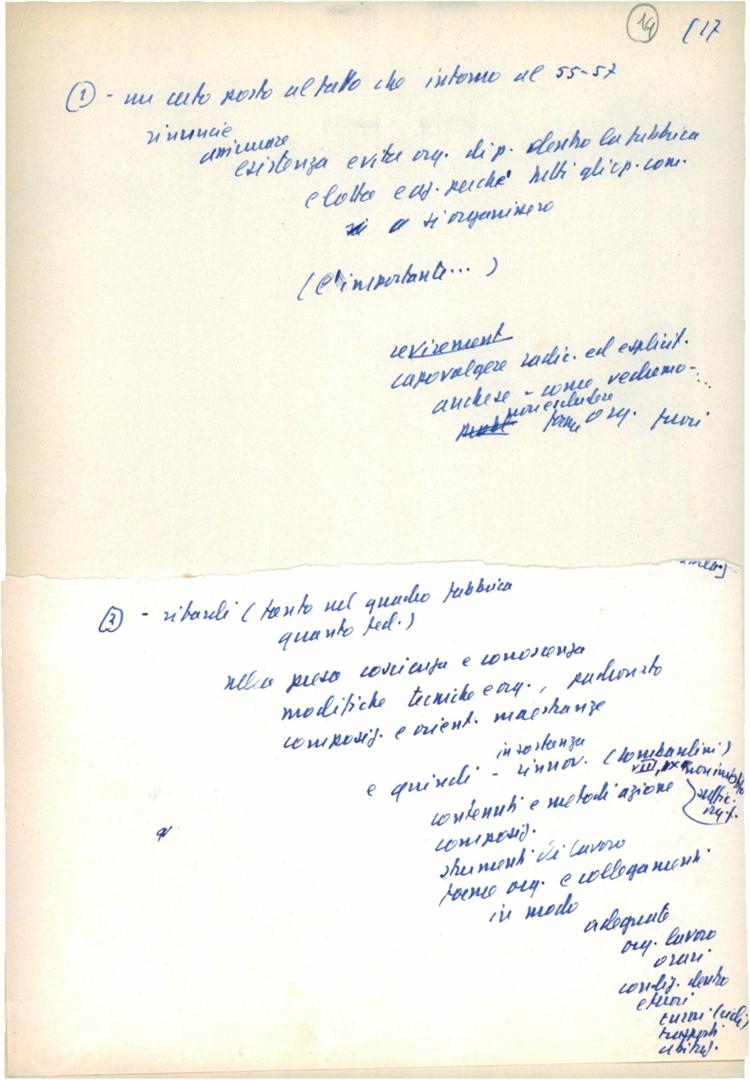 14 (17
① - un certo posto al fatto che intorno al 55-57
rinuncie
assicurare
esistenza e vita org. di p. dentro la fabbrica
e lotta e az. perché tutti gli op. com.
si organizzino
(è importante... )
revirement
capovolgere radic. ed esplicit.
anche se - come vedremo -
non escludere
forme org. fuori
② - ritardi (tanto nel quadro fabbrica
quanto fed.)
nella presa coscienza e conoscenza
modifiche tecniche e org., padronato
composiz. e orient. maestranze
in sostanza
e quindi - rinnov. (Lombardini)
VIII,
contenuti e metodi azione
suffic.
composiz.
strumenti di lavoro
forme org. e collegamenti
in modo
adeguato
org. lavoro
orari
condiz. dentro
e fuori
turni
trasporti
abitaz.